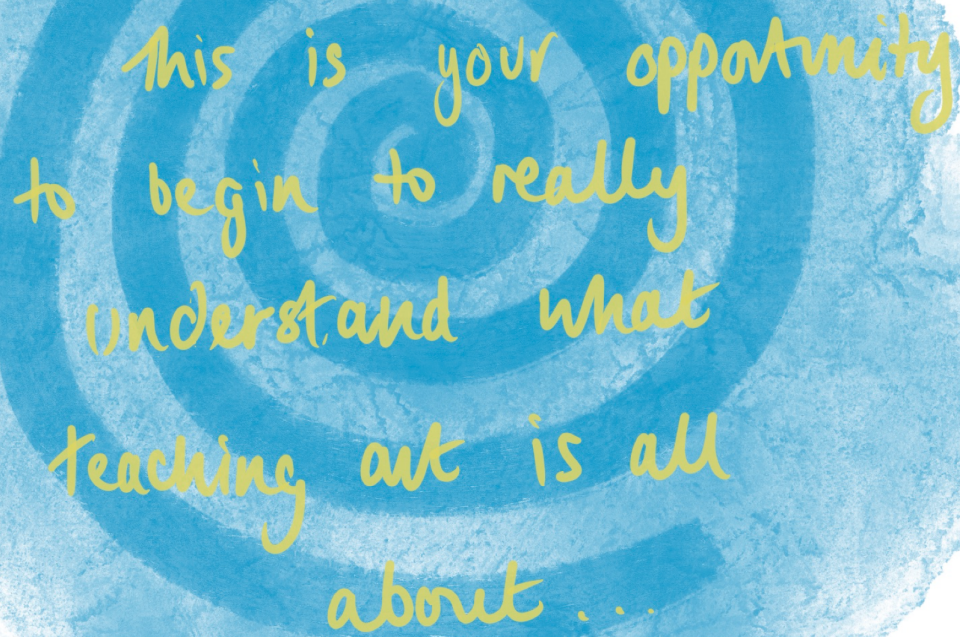 This is your opportunity
to begin to really
understand what
teaching art is all
about...